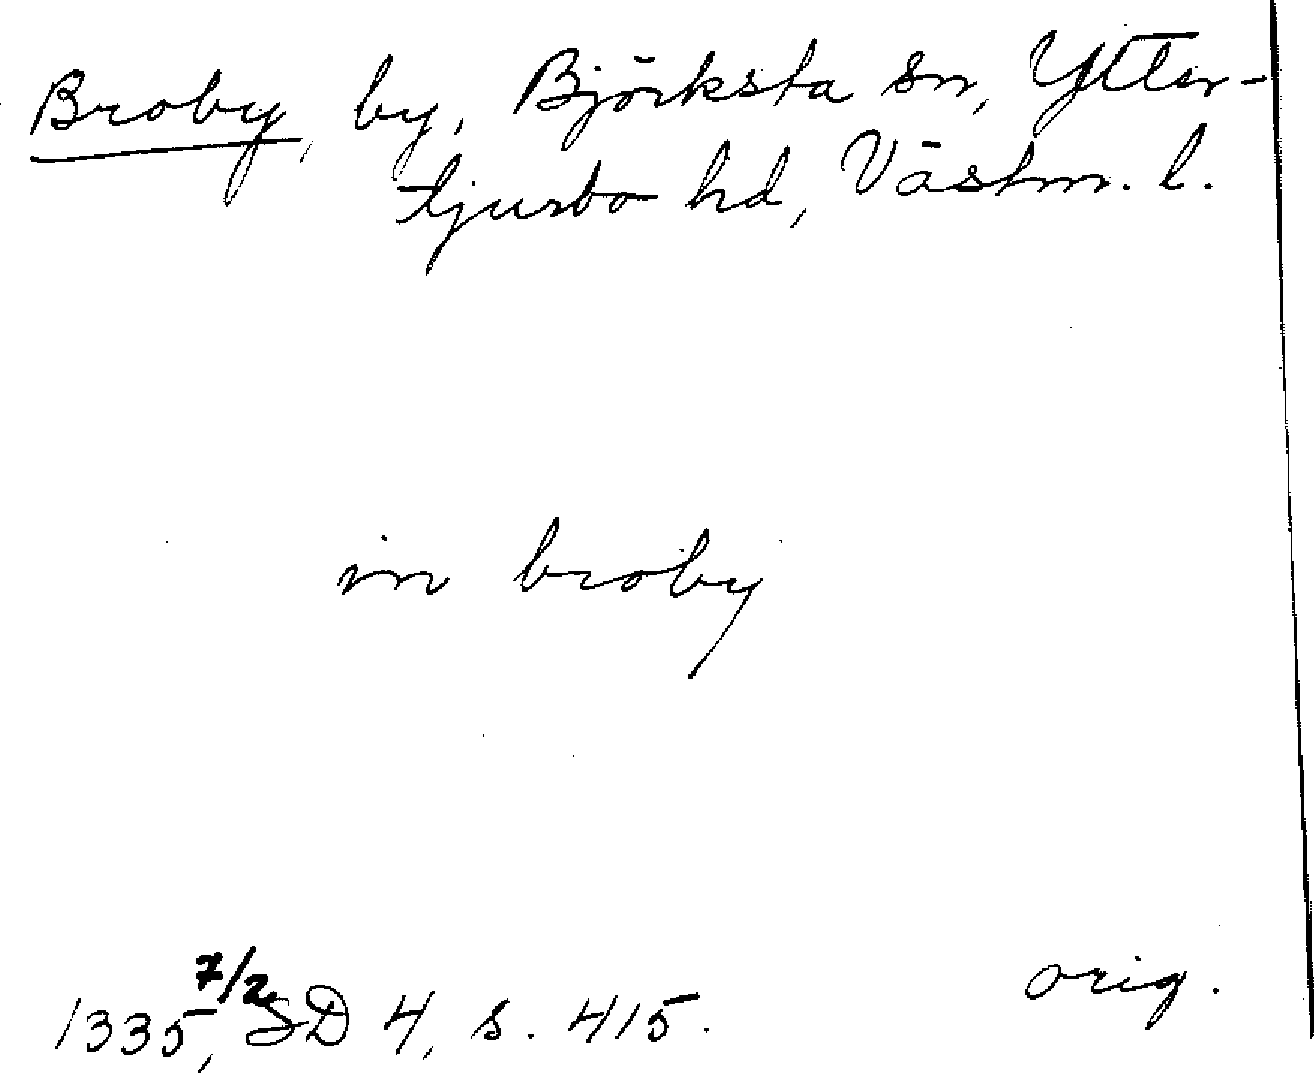 Broby, by, Björksta sn, Ytter-
tjurbo hd, Västm. l.
in broby
1335 7/2, SD 4, s. 415.
orig.